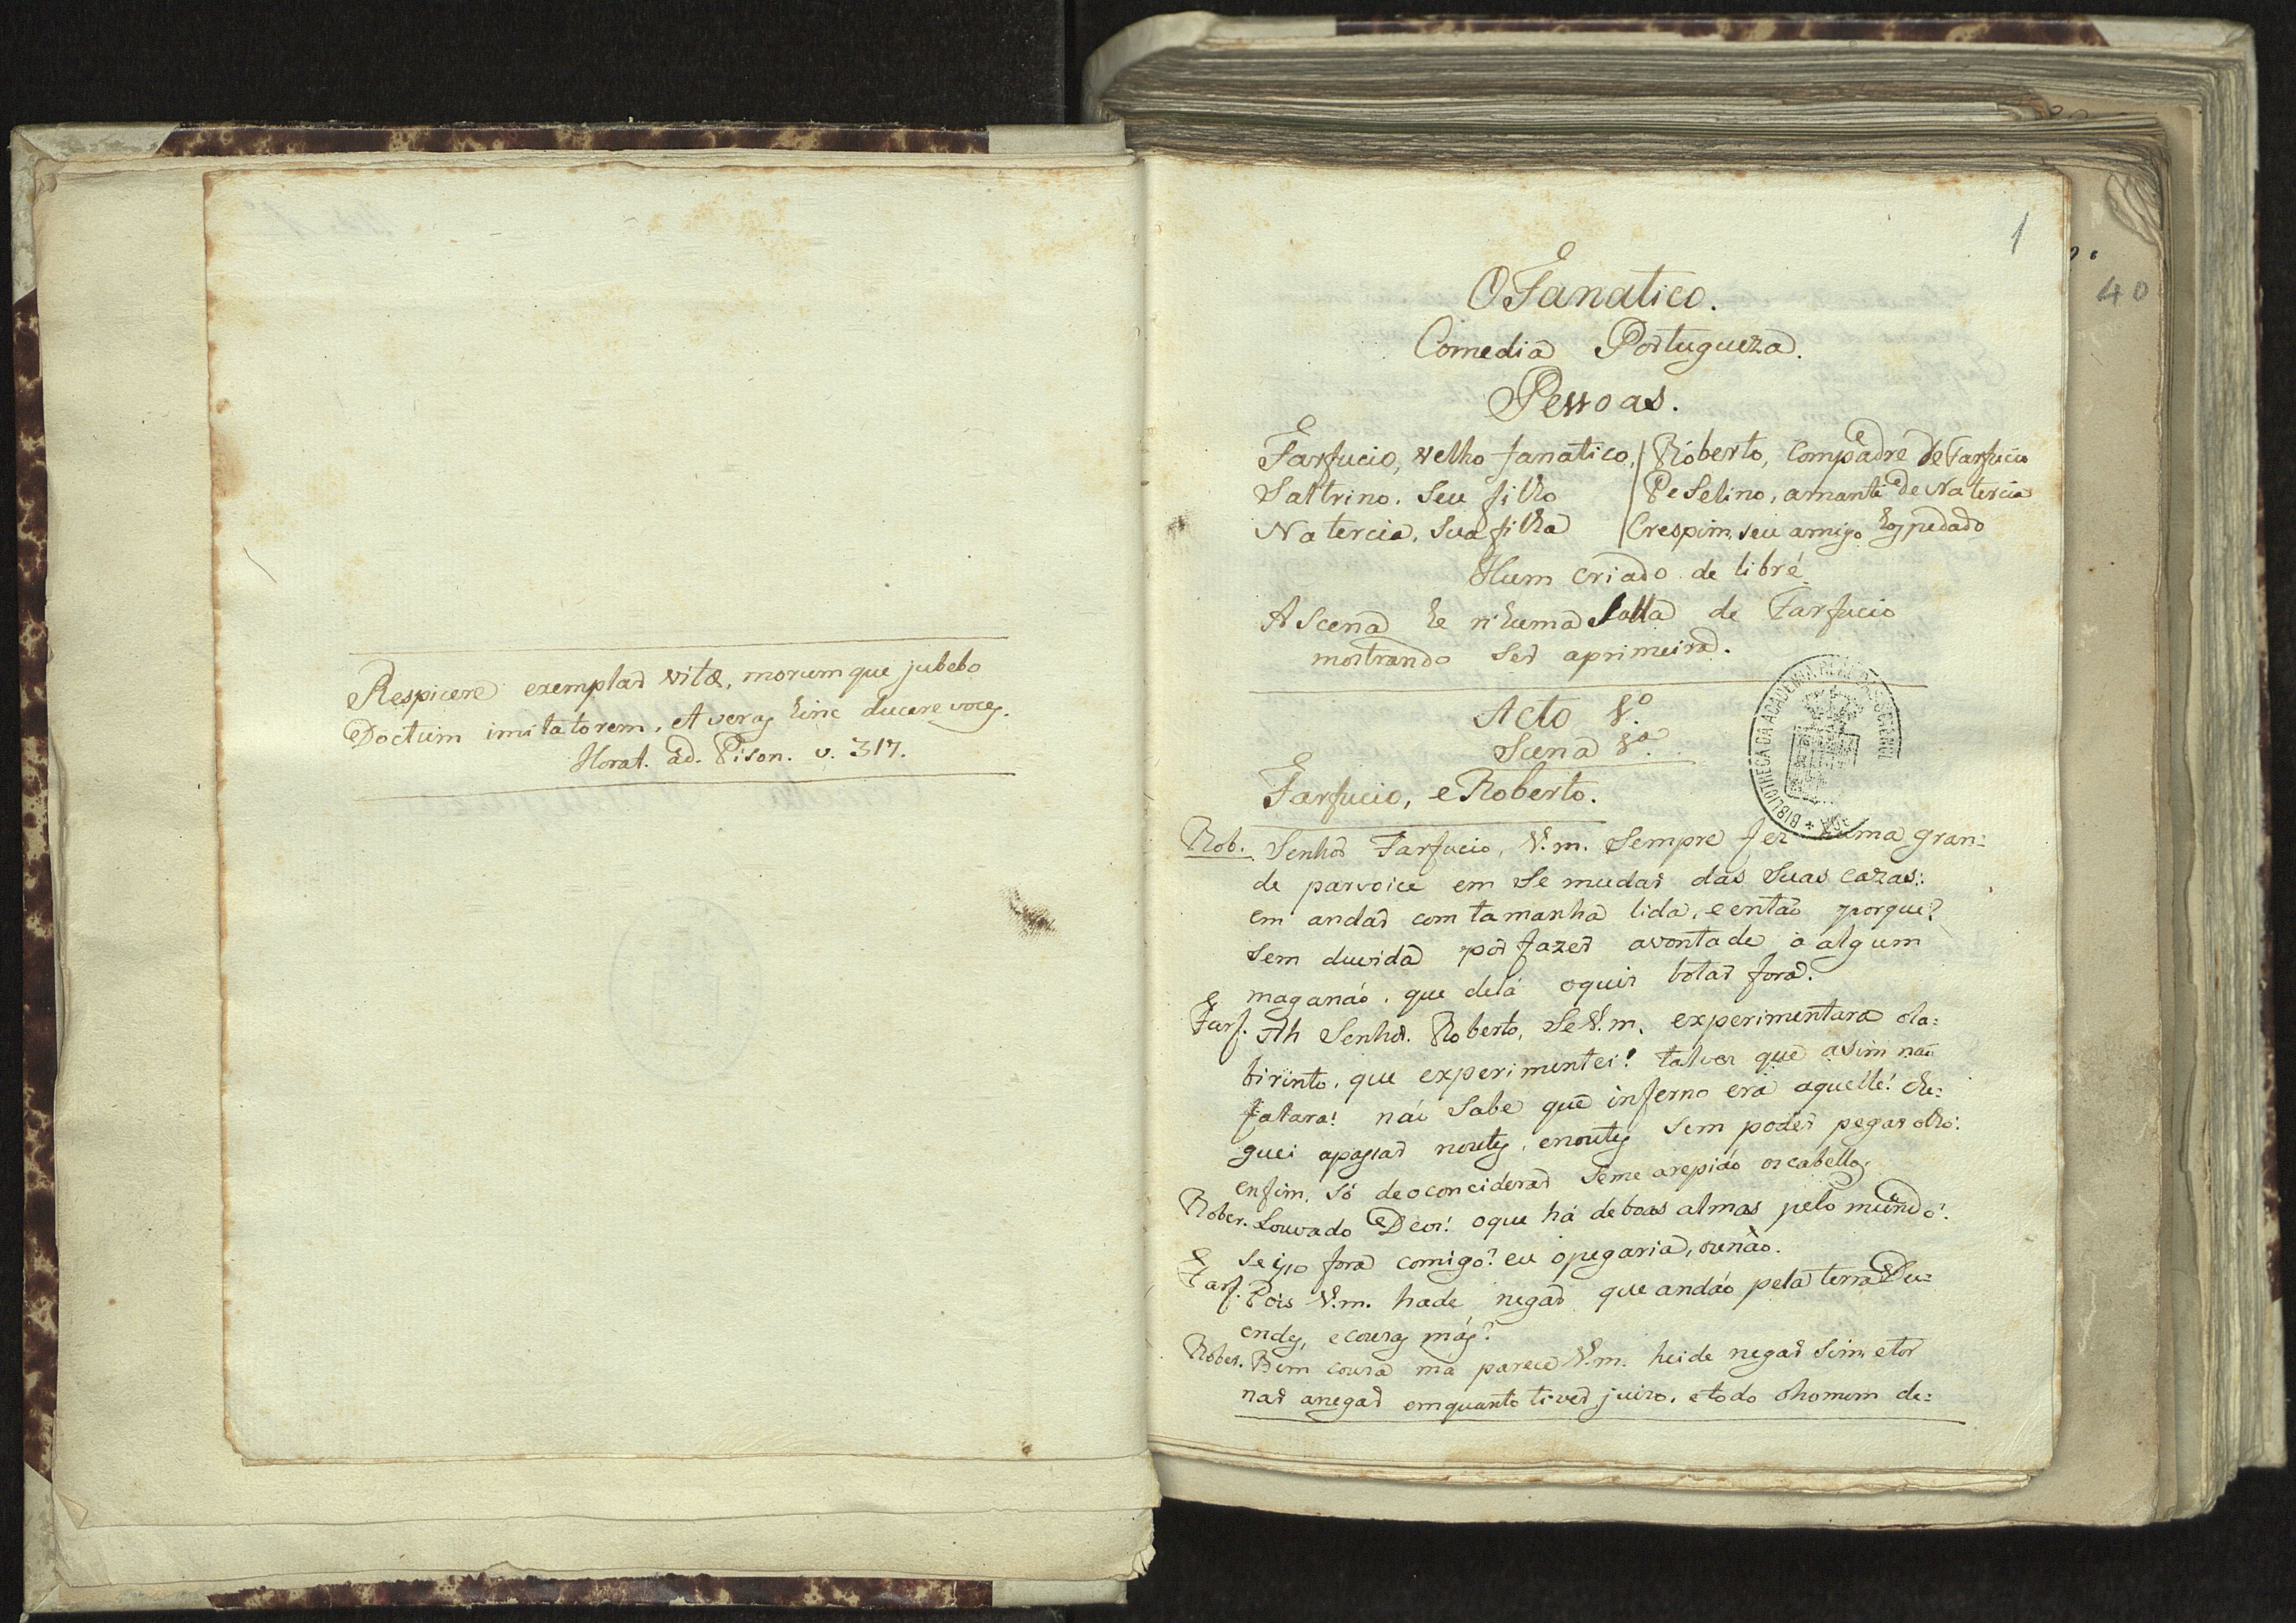 Respicere exemplar vitæ, morumque jubebo
Doctum imitatorem, et veras hinc ducere voces.
Horat. ad. Pison. v. 317.
1
40
O Fanatico.
Comedia Portugueza.
Pessoas.
Farfucio, velho fanatico, | Roberto, Compadre de Farfucio
Saltrino. Seu filho | Peselino, amante de Natercia
Natercia, Sua filha | Crespim, seu amigo hospedado
Hum criado de libré
A Scena he n'huma Salla de Farfucio
mostrando Ser aprimeira.
Acto 1.º
Scena 1.ª
Farfucio, e Roberto.
BIBLIOTHECA DA ACADEMIA REAL DAS SCIENCIAS
Rob. Senhor Farfucio, V.m. Sempre fez huma gran=
de parvoice em Se mudar das Suas cazas:
em andar com tamanha lida, eentaõ porque?
Sem duvida por fazer avontade a algum
maganáo, que delá oquis botar fora.
Farf. Ah Senhor. Roberto, Se V.m. experimentara ola=
birinto, que experimentei! talvez que asim naõ
falara! náo Sabe que inferno era aquelle! che=
guei apassar noutes, enoutes Sem poder pegar olho:
enfim, Só deoconciderar Seme arepiáo oscabellos.
Rober. Louvado Deos! oque há deboas almas pelo mundo!
Se isso fora comigo? eu opegaria, ounáo.
Farf. Pois V.m. hade negar que andáo pela terra Du=
endes, ecousas más?
Rober. Bem cousa má parece V.m. heide negar Sim, etor
nar anegar emquanto tiver juizo, etodo ohomem de=